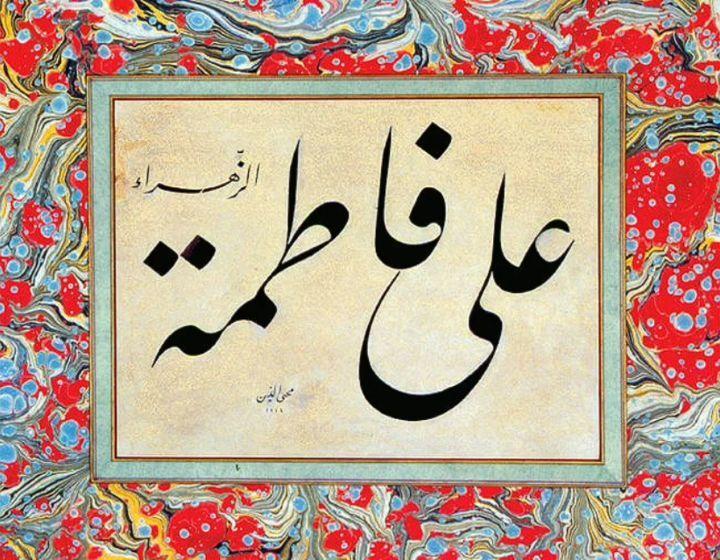 على فاطمة
الزّهراء
محيى الدين